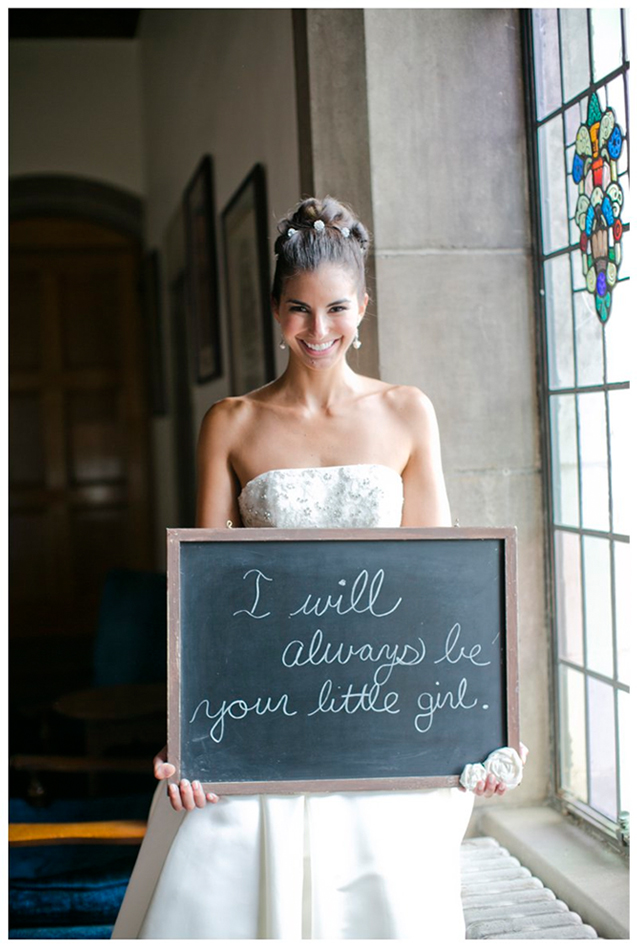 I will
always be
your little girl.